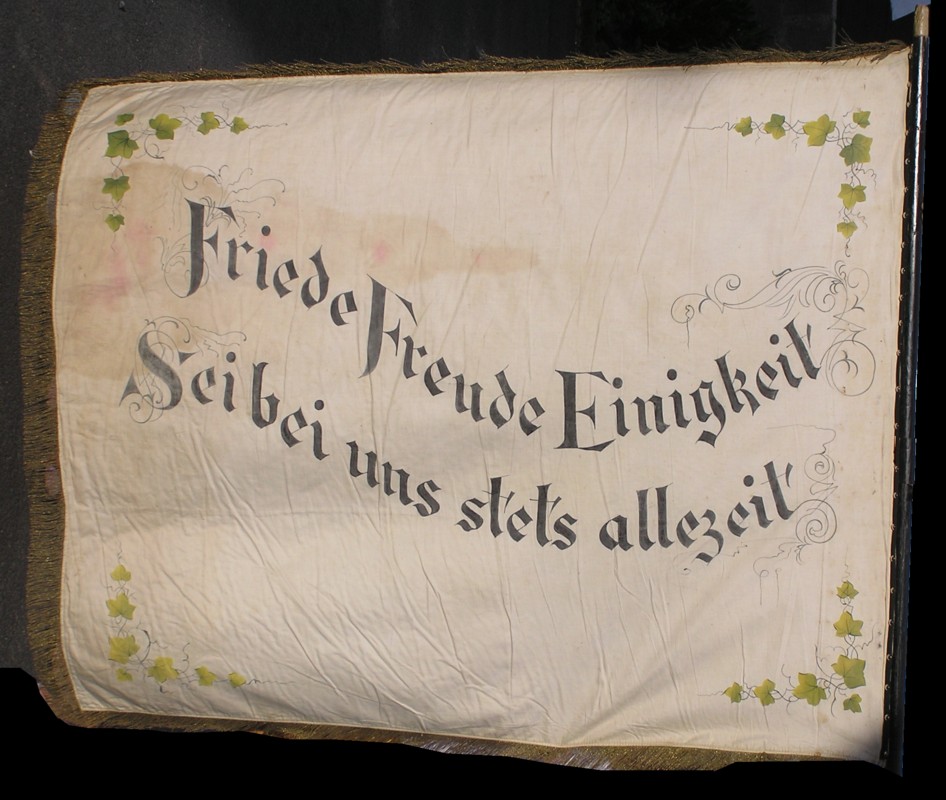 Friede Freude Einigkeit
Sei bei uns stets allezeit